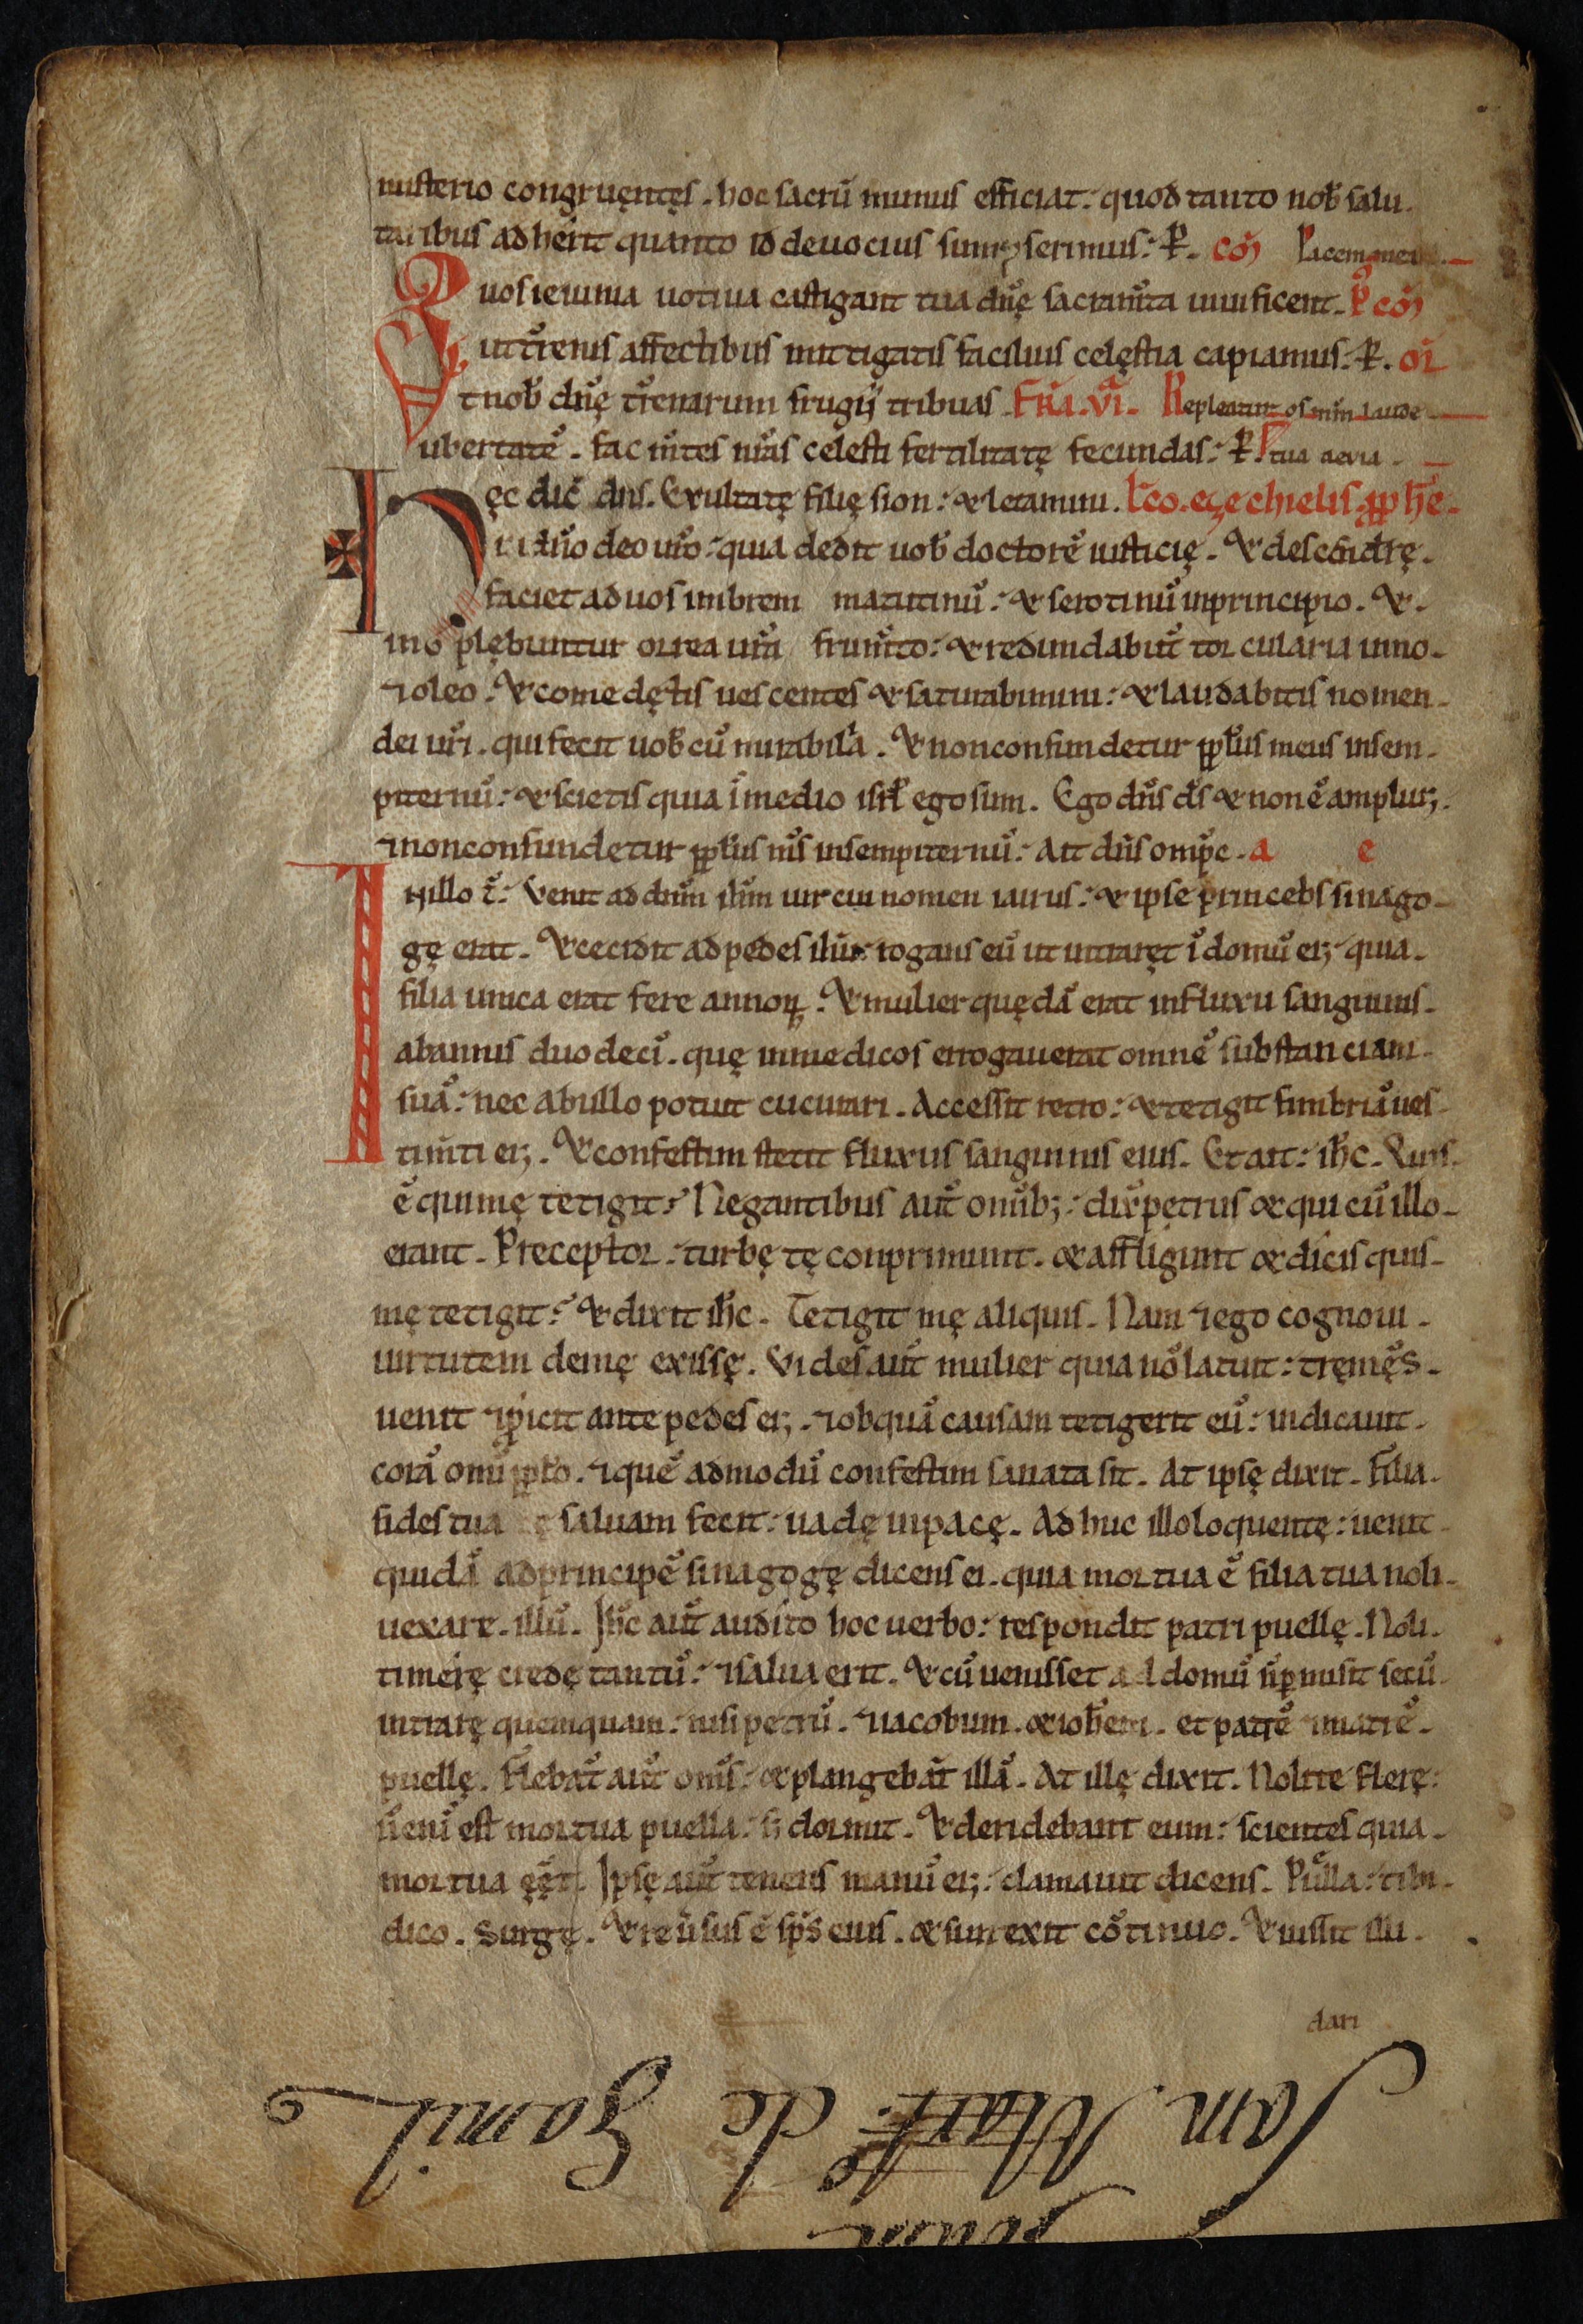 misterio congruęntęs. hoc sacrū munus efficiat: quod tanto nob̄ salu.
taribus adherit quanto id devocius sumpserimus: P̶. cō̄ Pacem mea
Quos ieiunia votiva castigant tua dn̄ę sacram̄ta vivificent. P̶ cō̄
Ut tr̄enis affectibus mittigatis facilius celęstia capiamus: P̶. or̄
Ut nob̄ dn̄ę tr̄enarum frugū tribuas F̄r̄ia. VI. Repleatur os m̄m laude
ubertatē. fac m̄tes nr̄as celesti fertilitatę fecundas: P̶ tua aevia.
Hęc dic̄ dn̄s. Exultatę filię sion: & letamini. Lc̄o. ezechielis. p̄ph̄e.
in dn̄o deo vr̄o: quia dedit vob̄ doctorē iusticię. & descendrę.
faciet ad vos imbrem matutinū: & serotinū in principio. &.
inplębuntur orrea vr̄a frum̄to: & redundabūt torcularia vino.
⁊ oleo. & comedętis vescentes & saturabimini: & laudabitis nomen.
dei vr̄i. qui fecit vob̄cū mirabil'a. & non confundetur pp̄l'us meus in sem-
piternū: & scietis quia ī medio isrl̄ ego sum. Ego dn̄s d̄s & non ē amplius;.
⁊ non confundętur pp̄l'us m̄s in sempiternū: Ait dn̄s omp̄c. a e
In illo t̄: Venit ad dn̄m ih̄m vir cui nomen iairus: & ipse princebs sinago-
gę erat. & cecidit ad pedes ih̄u: rogans eū ut intraręt ī domū ei; quia.
filia unica erat fere annoꝝ. & mulier quędā erat in fluxu sanguinis.
ab annis duodecī. quę in medicos errogaverat omnē substanciam.
suā: nec ab ullo potuit cucurari. Accessit retro: & tetigit fimbriā ves-
tim̄ti ei;. & confestim stetit fluxus sanguinis eius. Et ait: ih̄c. Quis.
ē qui mę tetigit? Negantibus aūt omīb;: dix̄ pętrus & qui cū illo.
erant. Preceptor: turbę tę conprimunt. & affligunt & dicis quis.
mę tetigit? & dixit ih̄c. Tetigit mę aliquis. Nam ⁊ ego cognovi.
virtutem de mę exissę. Vides aūt mulier quia nō latuit: tręmēs.
venit ⁊ p̄icit ante pedes ei;. ⁊ ob quā causam tetigerit eū: indicavit.
corā omī pp̄l'o. ⁊ quē admodū confestim sanata sit. At ipsę dixit. Filia.
fides tua ę salvam fecit: vadę in pacę. Ad huc illo loquentę: venit
quidā ad principē sinagogę dicens ei. quia mortua ē filia tua noli.
vexare. illū. Ih̄c aūt audito hoc verbo: respondit patri puellę. Noli.
timerę credę tantū: ⁊ salva erit. & cū venisset ad domū n̄ p̱misit secū.
intrarę quemquam. nisi petrū. ⁊ iacobum. & ioh̄em. et patrē ⁊ matrē.
puellę. Flebāt aūt om̄s: & plangebāt illā. At illę dixit. Nolite flerę:
n̄ enī est mortua puella: s; dormit. & deridebant eum: scientes quia.
mortua ęēt. Ipsę aūt tenens manū ei;: clamavit dicens. Puella: tibi.
dico. surgę. & rev̄sus ē sp̄s eius. & surrexit cōtinuo. & iussit illi.
dari
San Mart.º de Gomil